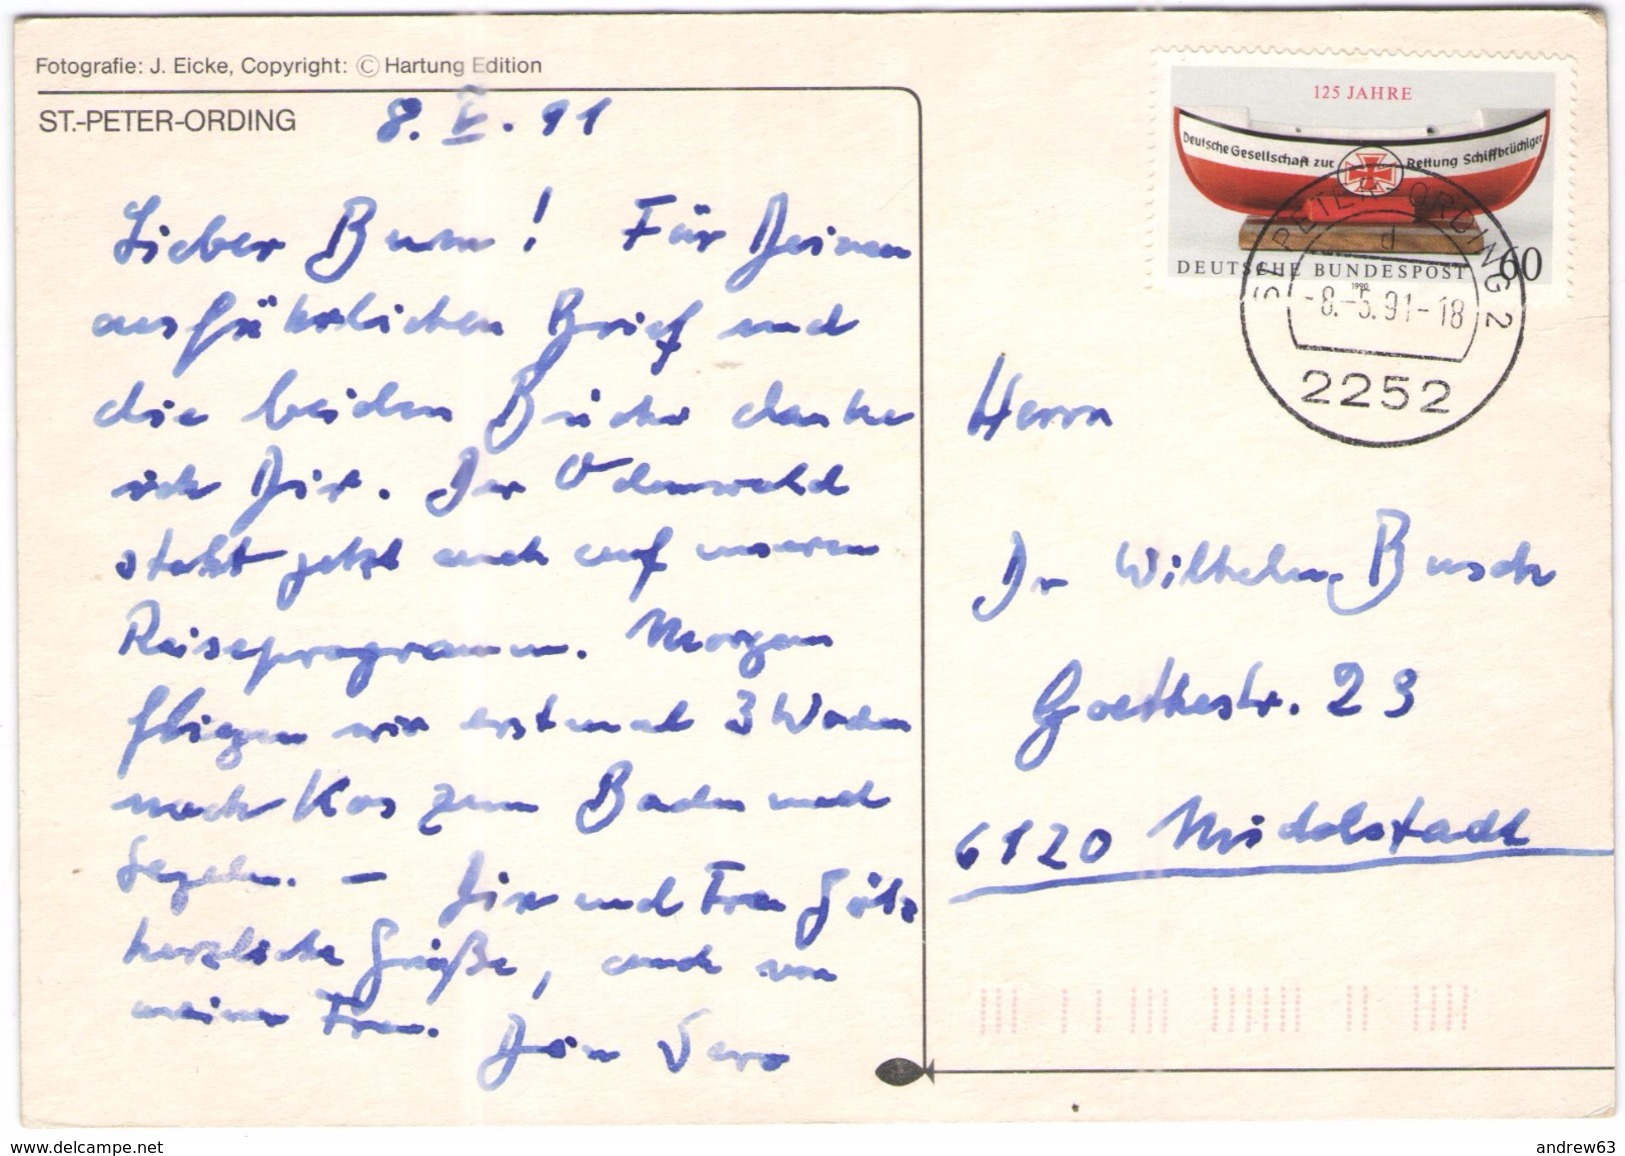 Fotografie: J. Eicke, Copyright: © Hartung Edition
ST.-PETER-ORDING
8. V. 91
Lieber Busch! Für Deinen
ausführlichen Brief und
die beiden Bücher danke
ich Dir. Der Odenwald
steht jetzt auch auf unserem
Reiseprogramm. Morgen
fliegen wir erstmal 3 Wochen
nach Kos zum Baden und
Segeln. – Dir und Frau
herzliche Grüße, auch von
meiner Frau.
Dein
125 JAHRE
Deutsche Gesellschaft zur Rettung Schiffbrüchiger
DEUTSCHE BUNDESPOST 60
1990
ST. PETER-ORDING 2
d
-8.-5.91-18
2252
Herrn
Dr Wilhelm Busch
Goethestr. 23
6120 Michelstadt
www.delcampe.net
andrew63